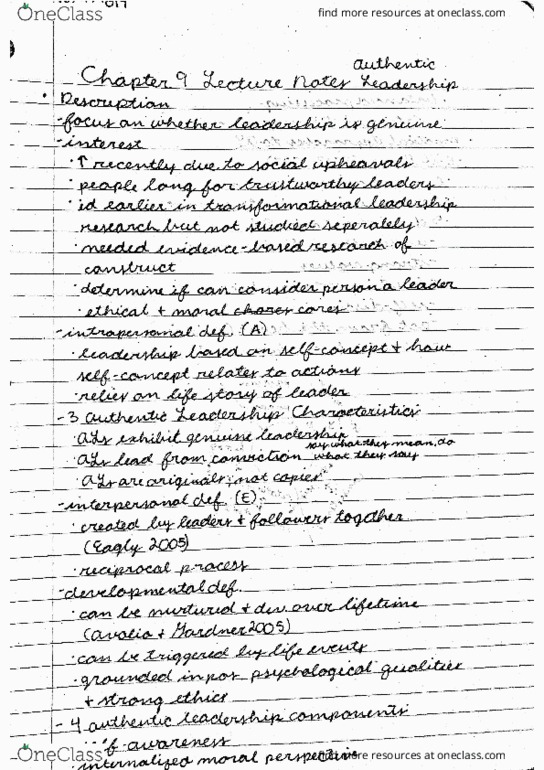 OneClass
find more resources at oneclass.com
authentic
Chapter 9 Lecture Notes Leadership
• Description
-focus on whether leadership is genuine
-interest
·↑ recently due to social upheavals
·people long for trustworthy leaders
·id earlier in transformational leadership
research but not studied seperately
·needed evidence-based research of
construct
·determine if can consider person a leader
·ethical + moral
-intrapersonal def. (A)
·leadership based on self-concept + how
self-concept relates to actions
·relies on life story of leader
-3 authentic Leadership Characteristics
·ALs exhibit genuine leadership
say what they mean, do
·ALs lead from conviction what they say
·ALs are originals, not copies
-interpersonal def. (E)
·created by leaders + followers together
(Eagly 2005)
·reciprocal process
-developmental def.
·can be nurtured + dev. over lifetime
(Avolio + Gardner 2005)
·can be triggered by life events
·grounded in pos psychological qualities
+ strong ethics
- 4 authentic leadership components
awareness
·internalized moral perspective
OneClass
find more resources at oneclass.com